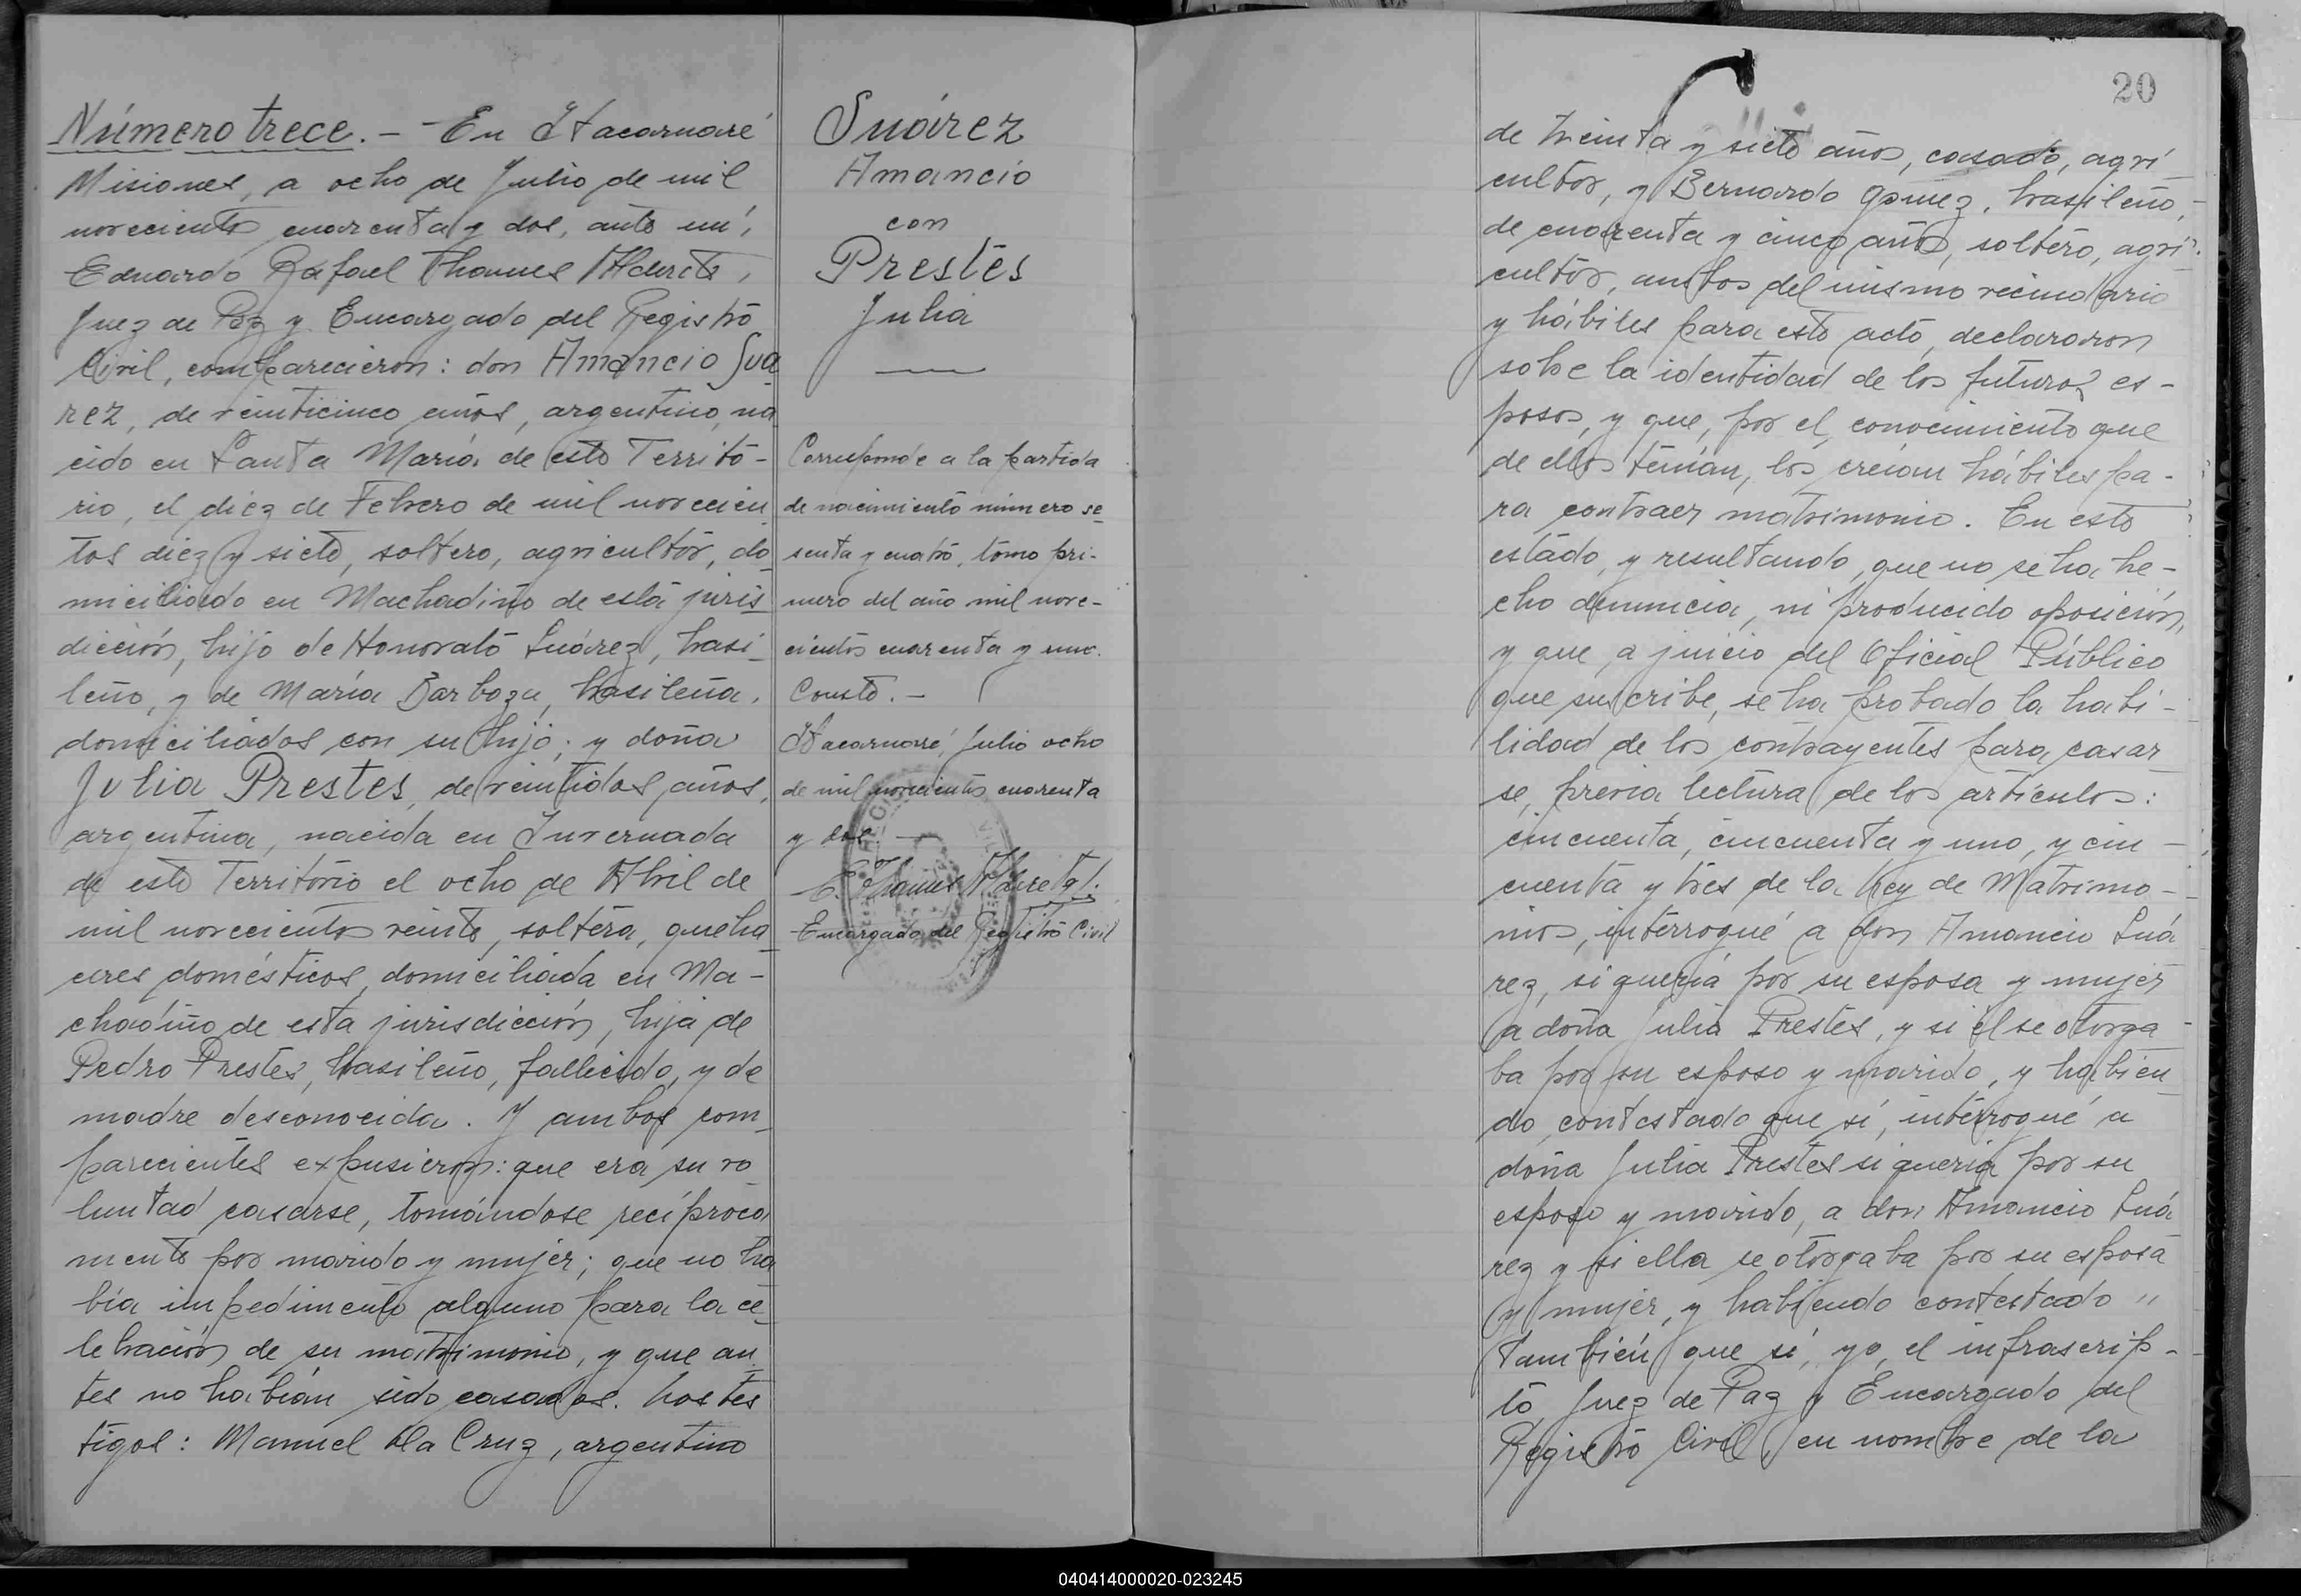 Número trece. - En Itacaruaré
Misiones, a ocho de Julio de mil
novecientos cuarenta y dos, ante mí,
Eduardo Rafael Thames Alderete,
Juez de Paz y Encargado del Registro
Civil, comparecieron: don Amancio Sua
rez, de veinticinco años, argentino, na
cido en Santa María de este Territo-
rio, el diez de Febrero de mil novecien
tos diez y siete, soltero, agricultor, do
miciliado en Machadiño de esta juris
dicción, hijo de Honorato Suárez, brasi
leño, y de María Barboza, brasileña,
domiciliados con su hijo; y doña
Julia Prestes, de veintidos años,
argentina, nacida en Invernada
de este Territorio el ocho de Abril de
mil novecientos veinte, soltera, queha
ceres domésticos, domiciliada en Ma-
chadiño de esta jurisdicción, hija de
Pedro Prestes, brasileño, fallecido, y de
madre desconocida. Y ambos com
parecientes expusieron: que era su vo
luntad casarse, tomándose recíproca
mente por marido y mujer; que no ha
bía impedimento alguno para la ce
lebración de su matrimonio, y que an
tes no habían sido casados. Los tes
tigos: Manuel da Cruz, argentino
Suárez
Amancio
con
Prestes
Julia
Corresponde a la partida
de nacimiento número se
senta y cuatro, tomo pri-
mero del año mil nove-
cientos cuarenta y uno.
Conste. -
Itacaruaré, Julio ocho
de mil novecientos cuarenta
y dos. -
E. Thames Alderete
Encargado del Registro Civil
20
de treinta y siete años, casado, agri
cultor, y Bernardo Gomez, brasileño,
de cuarenta y cinco años, soltero, agri
cultor, ambos del mismo vecindario
y hábiles para este acto, declararon
sobre la identidad de los futuros es-
posos, y que, por el conocimiento que
de ellos tenían, los creían hábiles pa-
ra contraer matrimonio. En este
estado, y resultando, que no se ha he-
cho denuncia, ni producido oposición,
y que, a juicio del Oficial Público
que suscribe, se ha probado la habi-
lidad de los contrayentes para casar
se, previa lectura de los artículos:
cincuenta, cincuenta y uno, y cin-
cuenta y tres de la Ley de Matrimo-
nios, interrogué a don Amancio Suá
rez, si quería por su esposa y mujer
a doña Julia Prestes, y si él se otorga-
ba por su esposo y marido, y habien
do contestado que sí, interrogué a
doña Julia Prestes si quería por su
esposo y marido, a don Amancio Suá
rez y si ella se otorgaba por su esposa
y mujer, y habiendo contestado "
también que sí, yo, el infrascrip-
to Juez de Paz y Encargado del
Registro Civil, en nombre de la
040414000020-023245